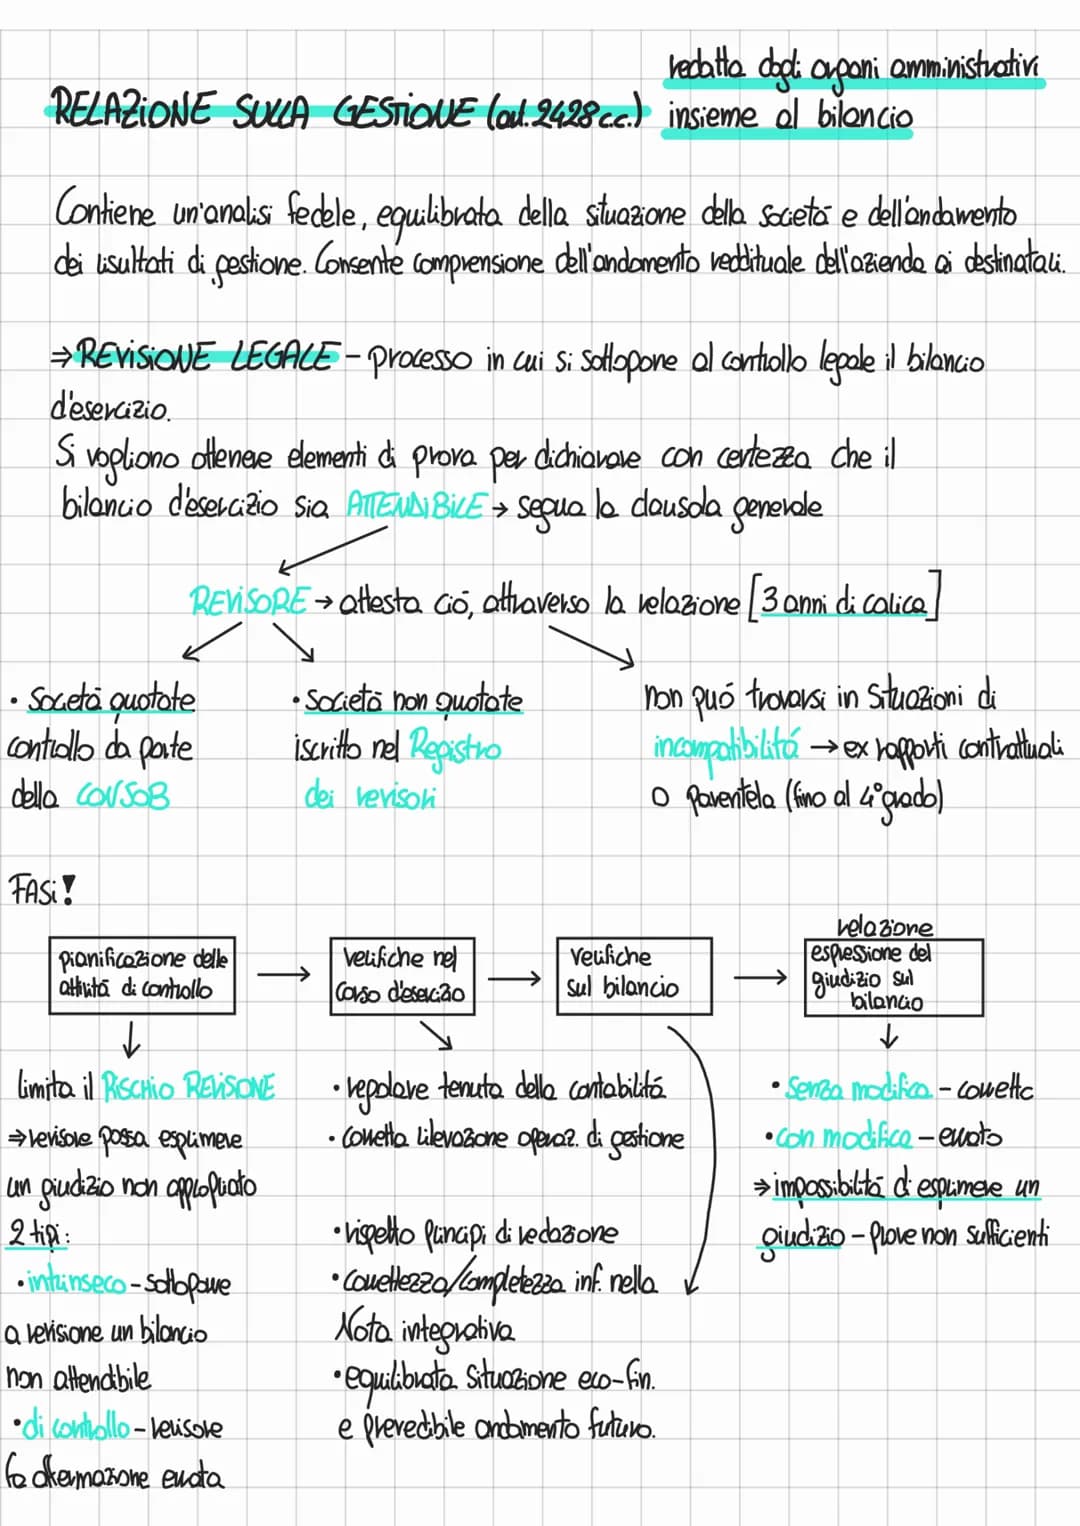 redatta dagli organi amministrativi
RELAZIONE SULLA GESTIONE (art. 2428 c.c.) insieme al bilancio
Contiene un'analisi fedele, equilibrata della situazione della società e dell'andamento
dei risultati di gestione. Consente comprensione dell'andamento reddituale dell'azienda ai destinatari.
⇒ REVISIONE LEGALE - processo in cui si sottopone al controllo legale il bilancio
d'esercizio.
Si vogliono ottenere elementi di prova per dichiarare con certezza che il
bilancio d'esercizio sia ATTENDIBILE → segua la clausola generale
REVISORE → attesta ciò, attraverso la relazione [3 anni di carica]
• Società quotate
controllo da parte
della CONSOB
• Società non quotate
iscritto nel Registro
dei revisori
non può trovarsi in situazioni di
incompatibilità → ex rapporti contrattuali
o parentela (fino al 4° grado)
FASI!
pianificazione delle
attività di controllo
→
verifiche nel
corso d'esercizio
→
verifiche
sul bilancio
→
relazione
espressione del
giudizio sul
bilancio
limita il RISCHIO REVISIONE
⇒ revisore possa esprimere
un giudizio non appropriato
2 tipi:
• intrinseco - sottoporre
a revisione un bilancio
non attendibile
• di controllo - revisore
fa affermazione errata
• regolare tenuta della contabilità
• corretta rilevazione operaz. di gestione
• rispetto principi di redazione
• correttezza/completezza inf. nella
Nota integrativa
• equilibrata situazione eco-fin.
e prevedibile andamento futuro.
• senza modifica - corretto
• con modifica - errato
⇒ impossibilità di esprimere un
giudizio - prove non sufficienti